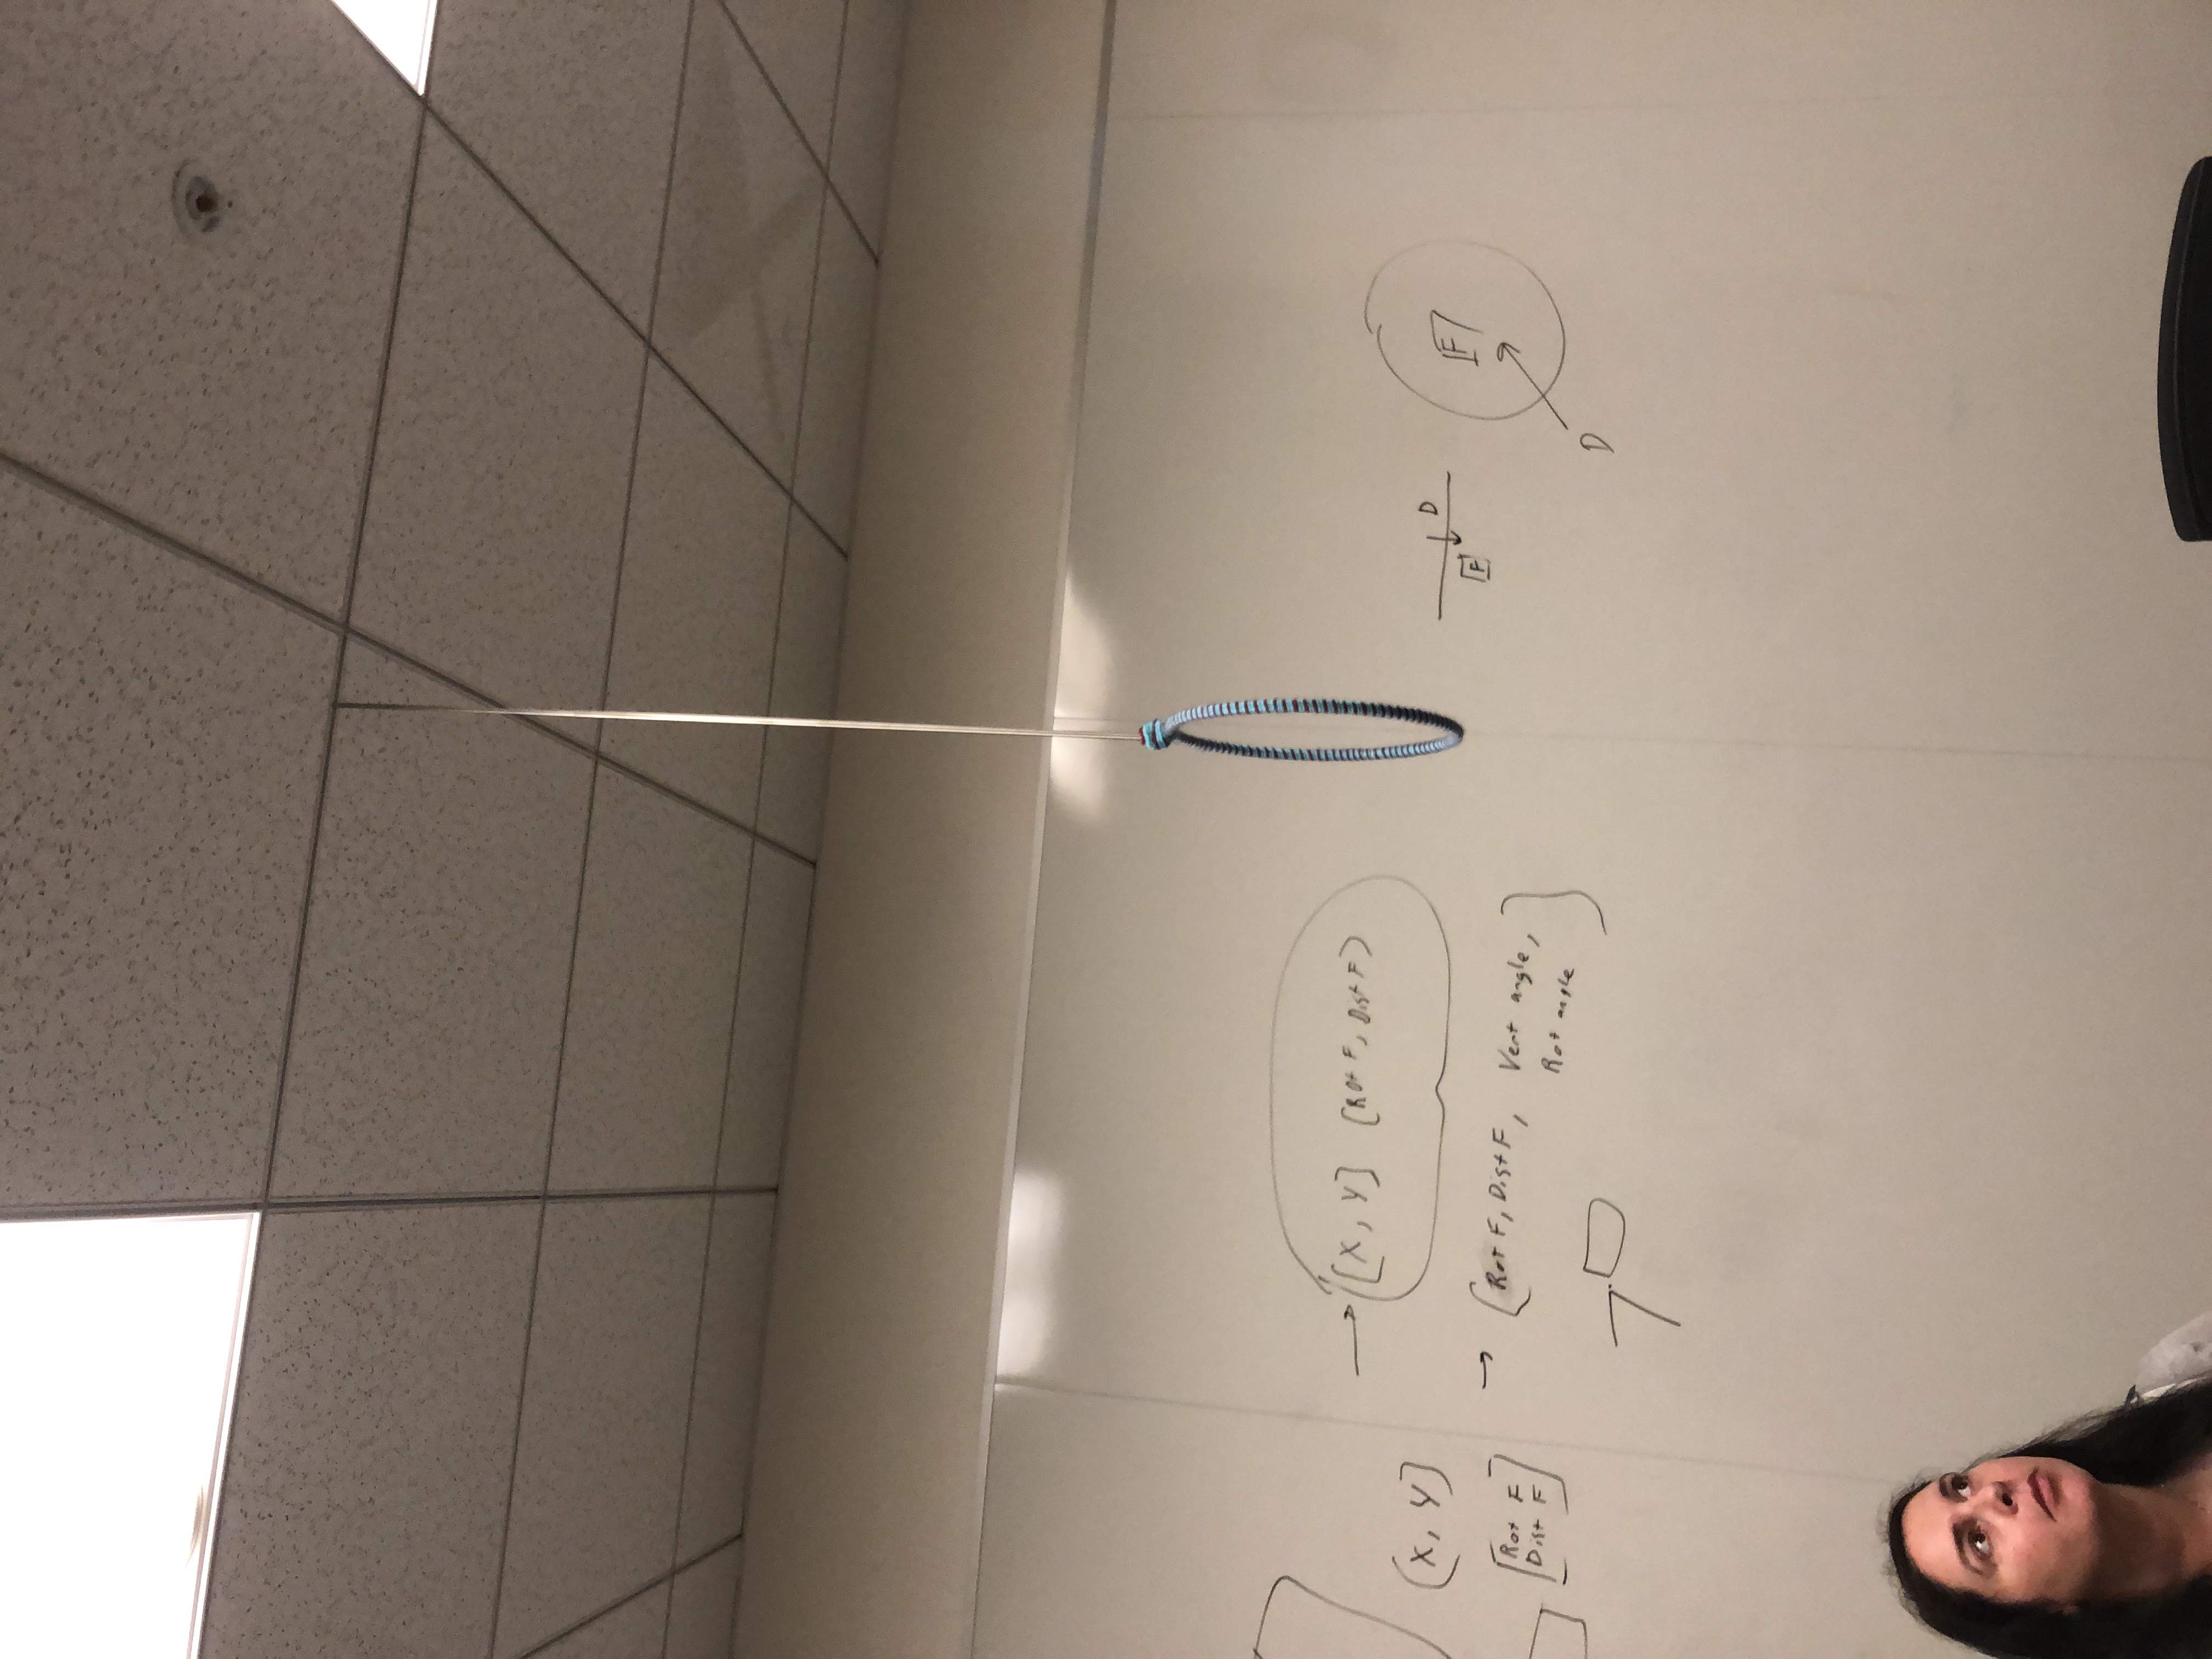 [X, Y] (Rot F, Dist F)
(X, Y]
[Rot F
Dist F]
[Rot F, Dist F, Vert angle,
Rot angle]
D
F
F
D